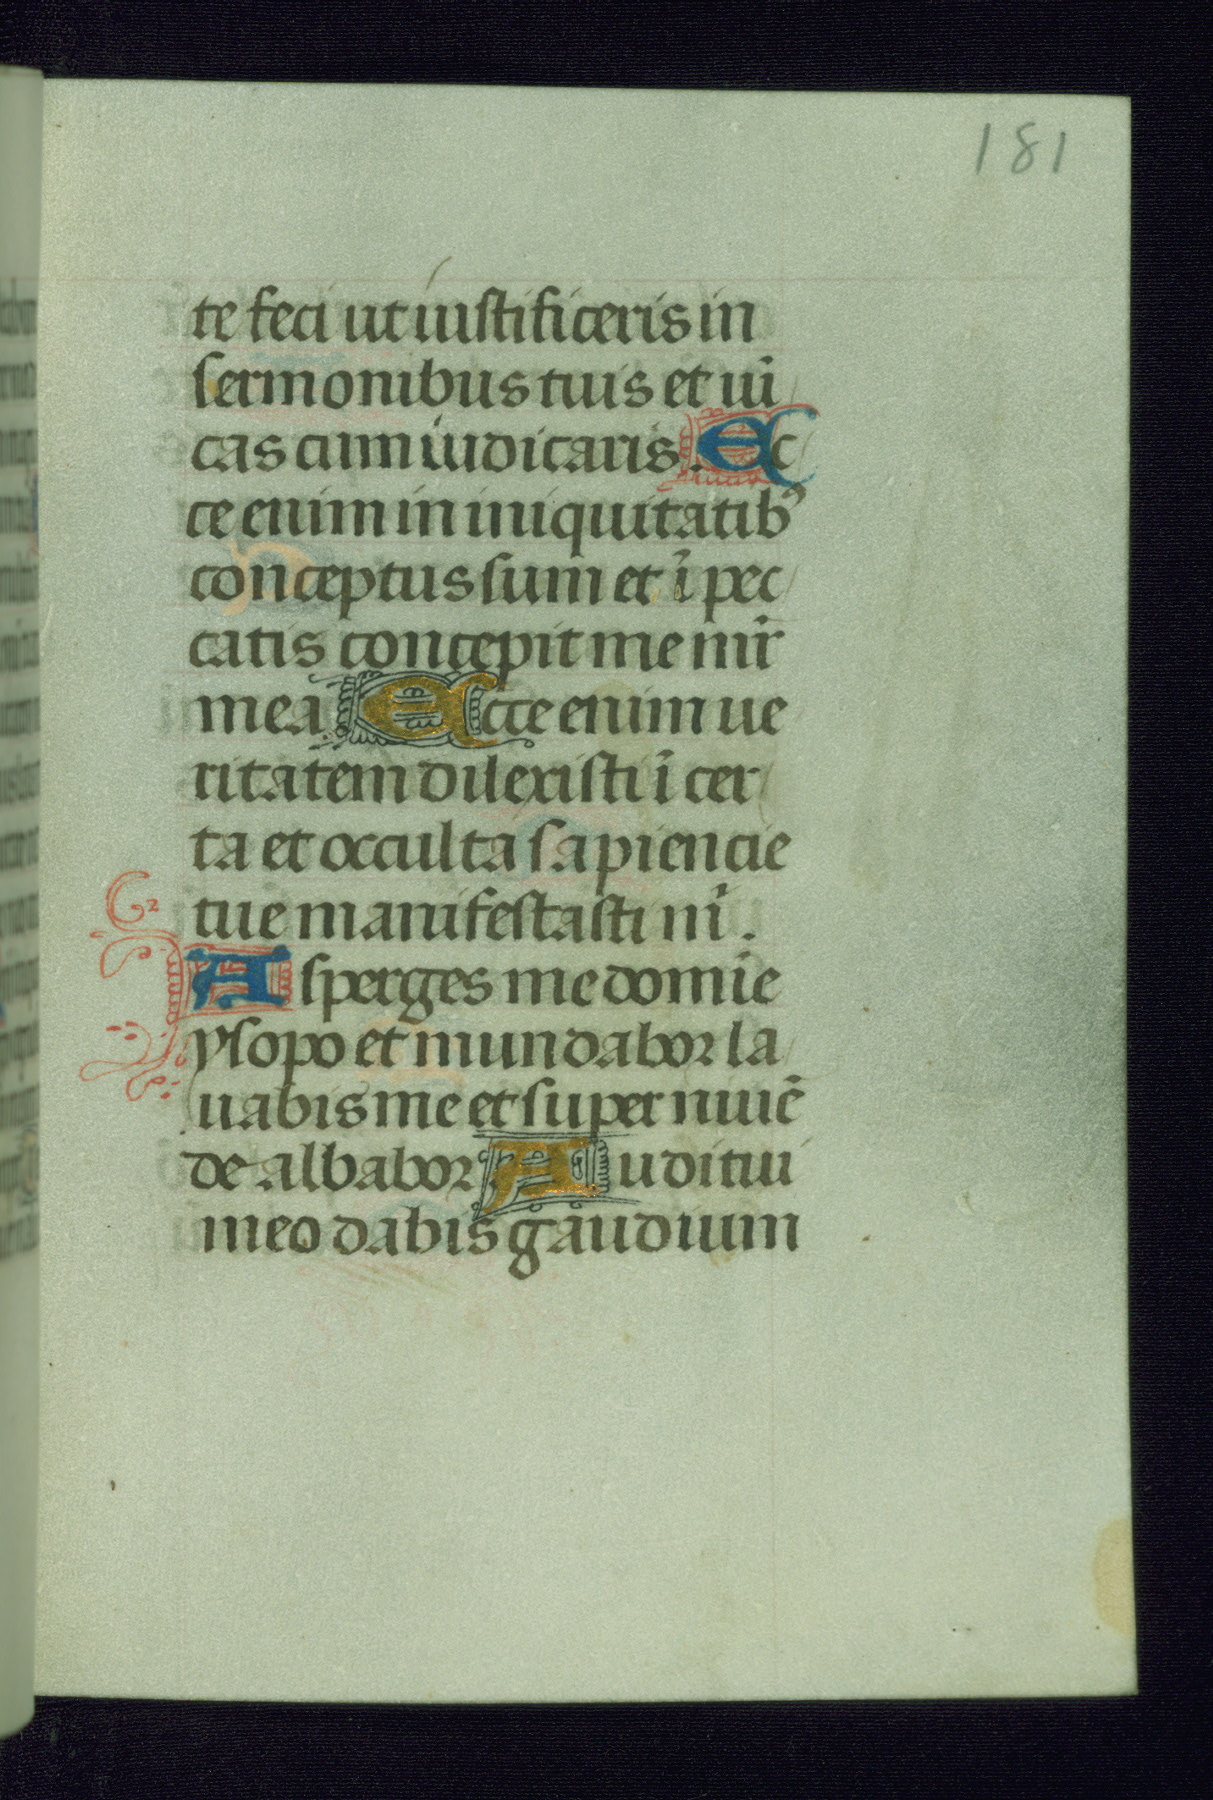 181
te feci ut iustificeris in
sermonibus tuis et uī
cas cum iudicaris. Ec
ce enim in iniquitatibꝰ
conceptus sum et ī pec
catis concepit me mr̄
mea Ecce enim ue
ritatem dilexisti ī cer
ta et occulta sapiencie
tue manifestasti m̄.
Asperges me domīe
ysopo et mundabor la
uabis me et super niuē
de albabor Auditui
meo dabis gaudium